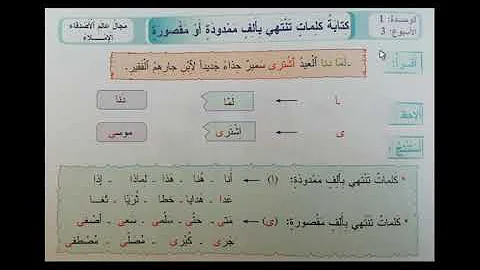 الوحدة: 1
الأسبوع: 3
كتابة كلمات تنتهي بألف ممدودة أو مقصورة
مجال عالم الأصدقاء
الإملاء
أقرأ:
ـ لمّا دنا العيد اشترى سمير حذاء جديدا لابن جارهم الفقير.
ألاحظ
ـا ← لمّا دنا
ى ← اشترى موسى
أستنتج
* كلمات تنتهي بألف ممدودة: (ا) ← أنا . هنا . هذا . لماذا . إذا
غدا . هدايا . خطا . ثريّا . ثغا
* كلمات تنتهي بألف مقصورة: (ى) ← متى . حتّى . سلمى . سعى . أضحى
جرى . كبرى . مصلّى . مصطفى